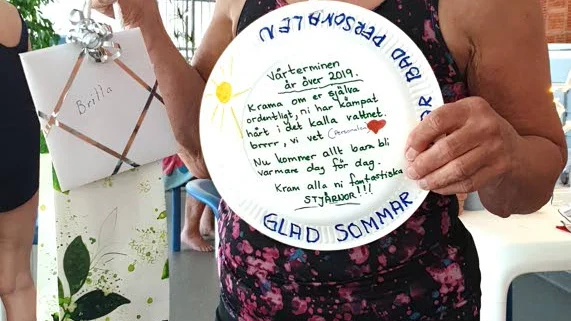 Britta
BAD PERSONALEN
Vårterminen
är över 2019.
Krama om er själva
ordentligt, ni har kämpat
hårt i det kalla vattnet.
brrrr, vi vet (Personalen)
Nu kommer allt bara bli
varmare dag för dag.
Kram alla ni fantastiska
STJÄRNOR!!!
GLAD SOMMAR